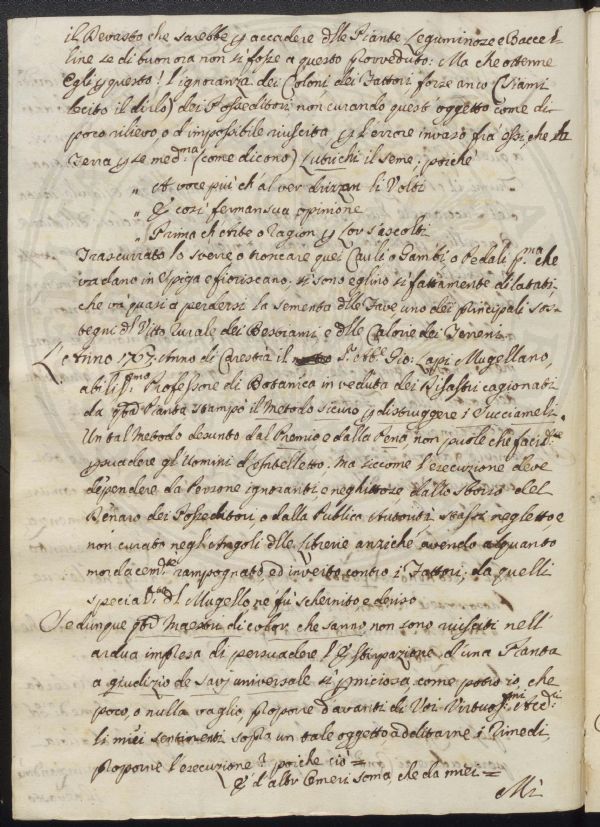 il Devasto che sarebbe p accadere dlle Piante Leguminose e Baccel-
line se di buon ora non si fosse a questo provveduto: Ma che ottenne
Egli p questo! l'ignoranza dei Coloni dei Fattori forse anco (siami
lecito il dirlo) dei Possessitori non curando questo oggetto come di
poco rilievo, o d'impossibile riuscita p l'errore invaso frà essi, che la
Terra p se med:ma (come dicono) Lubrichi il seme; poiche
„ A voce più ch'al ver drizzan li Volti
„ E così ferman sua opinione
„ Prima ch'arte o ragion p lor s'ascolti
Trascurato lo svere o troncare quei Cauli o Gambi, o Pedali p:ma che
vadano in Spiga e fioriscano; si sono eglino si fattamente dilatati,
che và quasi a perdersi la sementa dlle Fave uno dei principali sos-
tegni dl Vitto rurale dei Bestiami e dlle Calorie dei Terreni.
L'Anno 1767. Anno di Carestia il Sr. Gio: Lapi Mugellano,
abiliss:mo Professore di Botanica in veduta dei Disastri cagionati
da Pianta stampò il Metodo sicuro p distruggere i Succiameli.
Un tal Metodo desunto dal Premio e dalla Pena non puole che facil:te
psuadere gl'Uomini d'Intelletto. Ma siccome l'esecuzione deve
dependere da Persone ignoranti, e neghittose dallo sborso del
Denaro dei Possessitori, o dalla Publica Autorità stassi negletto e
non curato negl'Angoli dlle Librerie anziche avendo alquanto
mordacem:te rampognato, ed inveito contro i Fattori, da quelli
special:te dl Mugello né fù schernito e deriso
Se dunque Maestri di color, che sanno non sono riusciti nell'
ardua impresa di persuadere l'Estirpazione d'una Pianta
a giudizio de Savj universale si pniciosa come potrò io, che
poco, o nulla vaglio proporre davanti di Voi Virtuos:mi Accad:ci
li miei sentimenti sopra un tale oggetto additarne i Rimedi,
proporne l'esecuzione? poiche ciò =
E' d'altr'Omeri soma, che da miei =
Mi